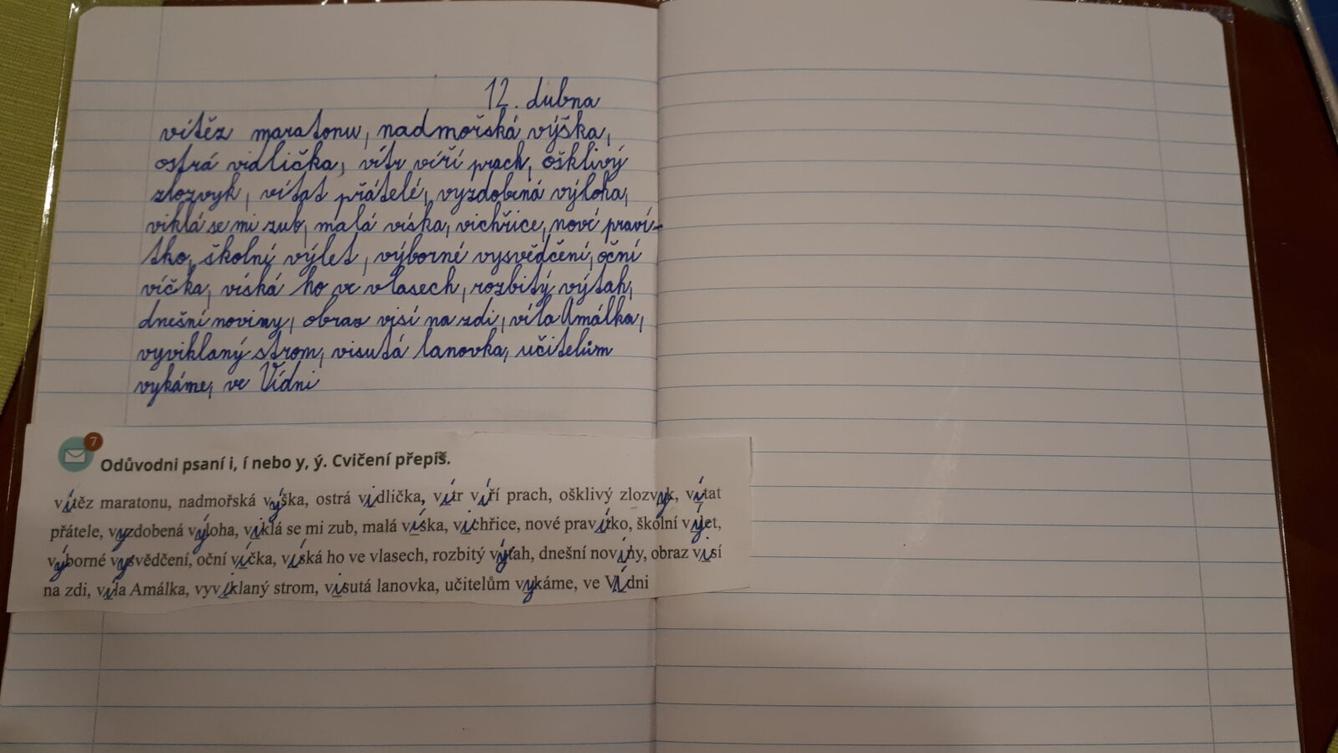 12. dubna
vítěz maratonu, nadmořská výška,
ostrá vidlička, vítr víří prach, ošklivý
zlozvyk, vítat přátelé, vyzdobená výloha,
viklá se mi zub, malá víska, vichřice, nové praví-
tko, školní výlet, výborné vysvědčení, oční
víčka, víská ho ve vlasech, rozbitý výtah,
dnešní noviny, obraz visí na zdi, víla Amálka,
vyviklaný strom, visutá lanovka, učitelům
vykáme, ve Vídni
7
Odůvodni psaní i, í nebo y, ý. Cvičení přepiš.
vítěz maratonu, nadmořská výška, ostrá vidlička, vítr víří prach, ošklivý zlozvyk, vítat
přátele, vyzdobená výloha, viklá se mi zub, malá víska, vichřice, nové pravítko, školní výlet,
výborné vysvědčení, oční víčka, víská ho ve vlasech, rozbitý výtah, dnešní noviny, obraz visí
na zdi, víla Amálka, vyviklaný strom, visutá lanovka, učitelům vykáme, ve Vídni